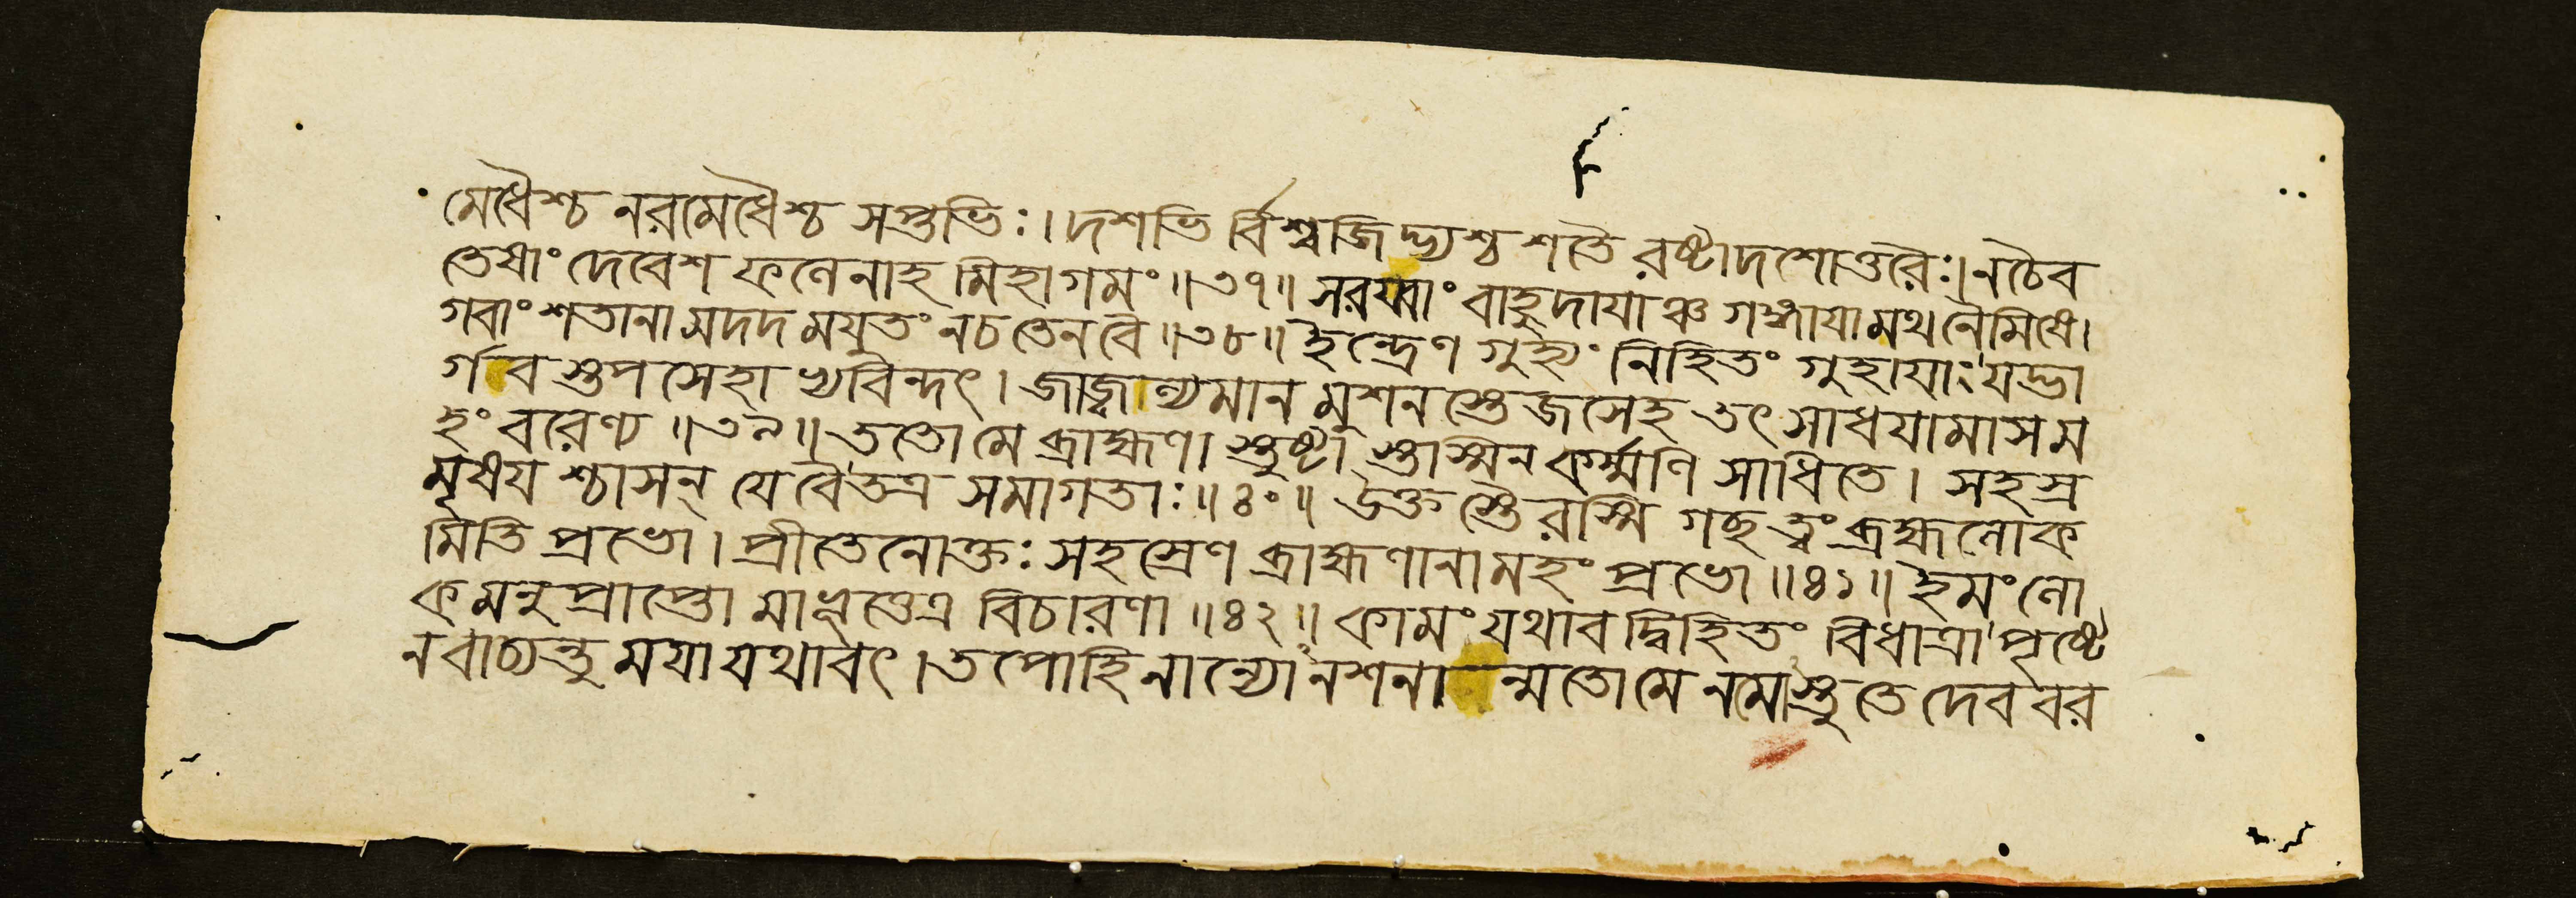 মেধৈশ্চ নরমেধৈশ্চ সপ্তভিঃ। দশভি র্বিশ্বজিদ্ভ্যশ্চ শতৈ রষ্টাদশোত্তরৈঃ। নচৈব
তেষাং দেবেশ ফলেনাহ মিহাগমং॥৩৭॥ সরয্বাং বাহুদাযাঞ্চ গঙ্গাযামথ নৈমিষে।
গবাং শতানা মদদ মযুতং নচ তেনবৈ॥৩৮॥ ইন্দ্রেণ গুহ্যং নিহিতং গুহাযাং যদ্ভা
র্গব স্তপসেহা ভ্যবিন্দৎ। জাজ্বল্যমান মুশন স্তেজসেহ তৎ সাধযামাসম
হং বরেণ্য॥৩৯॥ ততোমে ব্রাহ্মণা স্তুষ্টা স্তাস্মিন কর্ম্মণি সাধিতে। সহস্র
মৃষয শ্চাসন্ যেবৈতত্র সমাগতাঃ॥৪০॥ উক্ত স্তৈরস্মি গছ ত্বং ব্রহ্মলোক
মিতি প্রভো। প্রীতেনোক্তঃ সহস্রেণ ব্রাহ্মণানামহং প্রভো॥৪১॥ ইমং লো
কমনু প্রাপ্তো মাভূত্তেত্র বিচারণা॥৪২॥ কামং যথাবদ্বিহিতং বিধাত্রা পৃষ্টে
নবাচ্যন্তু মযা যথাবৎ। তপোহি নান্যোনশনা ন্মতোমে নমোস্তুতে দেববর